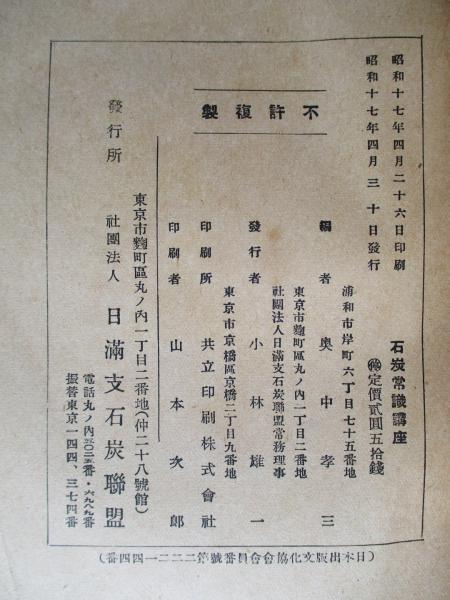 昭和十七年四月二十六日印刷
昭和十七年四月三十日發行
石炭常識講座
㊕定價貳圓五拾錢
不許複製
浦和市岸町六丁目七十五番地
編者 奥中孝三
東京市麴町區丸ノ內一丁目二番地
社團法人日滿支石炭聯盟常務理事
發行者 小林雄一
東京市京橋區京橋二丁目九番地
印刷所 共立印刷株式會社
印刷者 山本次郎
東京市麴町區丸ノ內一丁目二番地(仲二十八號館)
發行所 社團法人 日滿支石炭聯盟
電話丸ノ內五〇二五番・六九八九番
振替東京一四四、三七四番
(日本出版文化協會會員番號第二二二一四四番)